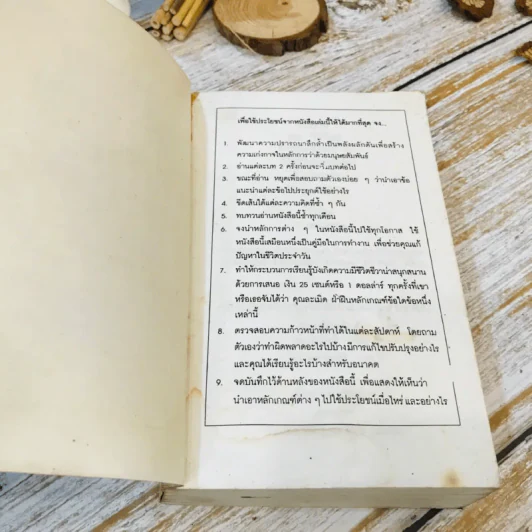 เพื่อใช้ประโยชน์จากหนังสือเล่มนี้ให้ได้มากที่สุด จง...
1. พัฒนาความปรารถนาลึกล้ำเป็นพลังผลักดันเพื่อสร้าง
ความเก่งกาจในหลักการว่าด้วยมนุษยสัมพันธ์
2. อ่านแต่ละบท 2 ครั้งก่อนจะเริ่มบทต่อไป
3. ขณะที่อ่าน หยุดเพื่อสอบถามตัวเองบ่อย ๆ ว่านำเอาข้อ
แนะนำแต่ละข้อไปประยุกต์ใช้อย่างไร
4. ขีดเส้นใต้แต่ละความคิดที่ซ้ำ ๆ กัน
5. ทบทวนอ่านหนังสือนี้ซ้ำทุกเดือน
6. จงนำหลักการต่าง ๆ ในหนังสือนี้ไปใช้ทุกโอกาส ใช้
หนังสือนี้เสมือนหนึ่งเป็นคู่มือในการทำงาน เพื่อช่วยคุณแก้
ปัญหาในชีวิตประจำวัน
7. ทำให้กระบวนการเรียนรู้บังเกิดความมีชีวิตชีวาน่าสนุกสนาน
ด้วยการเสนอ เงิน 25 เซนต์หรือ 1 ดอลล่าร์ ทุกครั้งที่เขา
หรือเธอจับได้ว่า คุณละเมิด ฝ่าฝืนหลักเกณฑ์ข้อใดข้อหนึ่ง
เหล่านี้
8. ตรวจสอบความก้าวหน้าที่ทำได้ในแต่ละสัปดาห์ โดยถาม
ตัวเองว่าทำผิดพลาดอะไรไปบ้างมีการแก้ไขปรับปรุงอย่างไร
และคุณได้เรียนรู้อะไรบ้างสำหรับอนาคต
9. จดบันทึกไว้ด้านหลังของหนังสือนี้ เพื่อแสดงให้เห็นว่า
นำเอาหลักเกณฑ์ต่าง ๆ ไปใช้ประโยชน์เมื่อไหร่ และอย่างไร